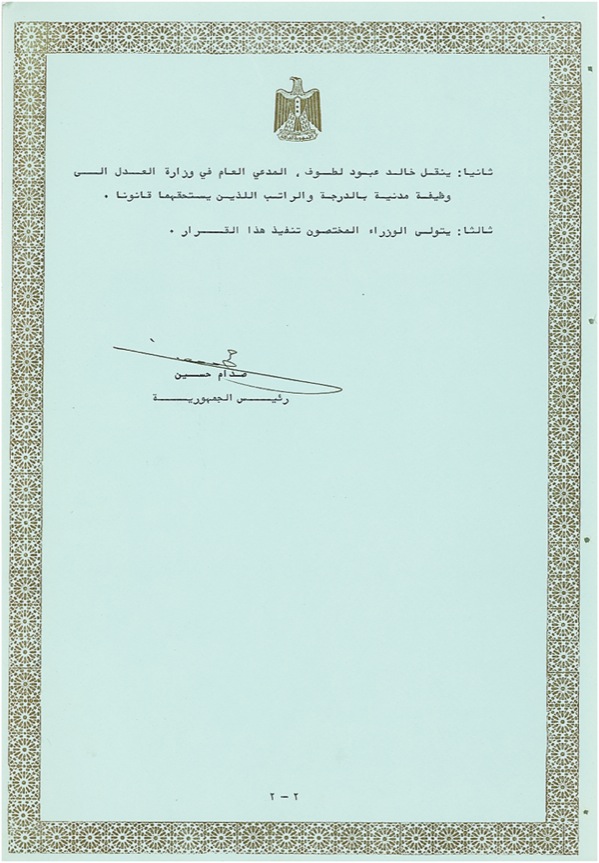 ثانيا: ينقل خالد عبود لطوف , المدعي العام في وزارة العدل الى
وظيفة مدنية بالدرجة والراتب اللذين يستحقهما قانونا .
ثالثا: يتولى الوزراء المختصون تنفيذ هذا القرار .
صدام حسين
رئيس الجمهورية
٢ - ٢